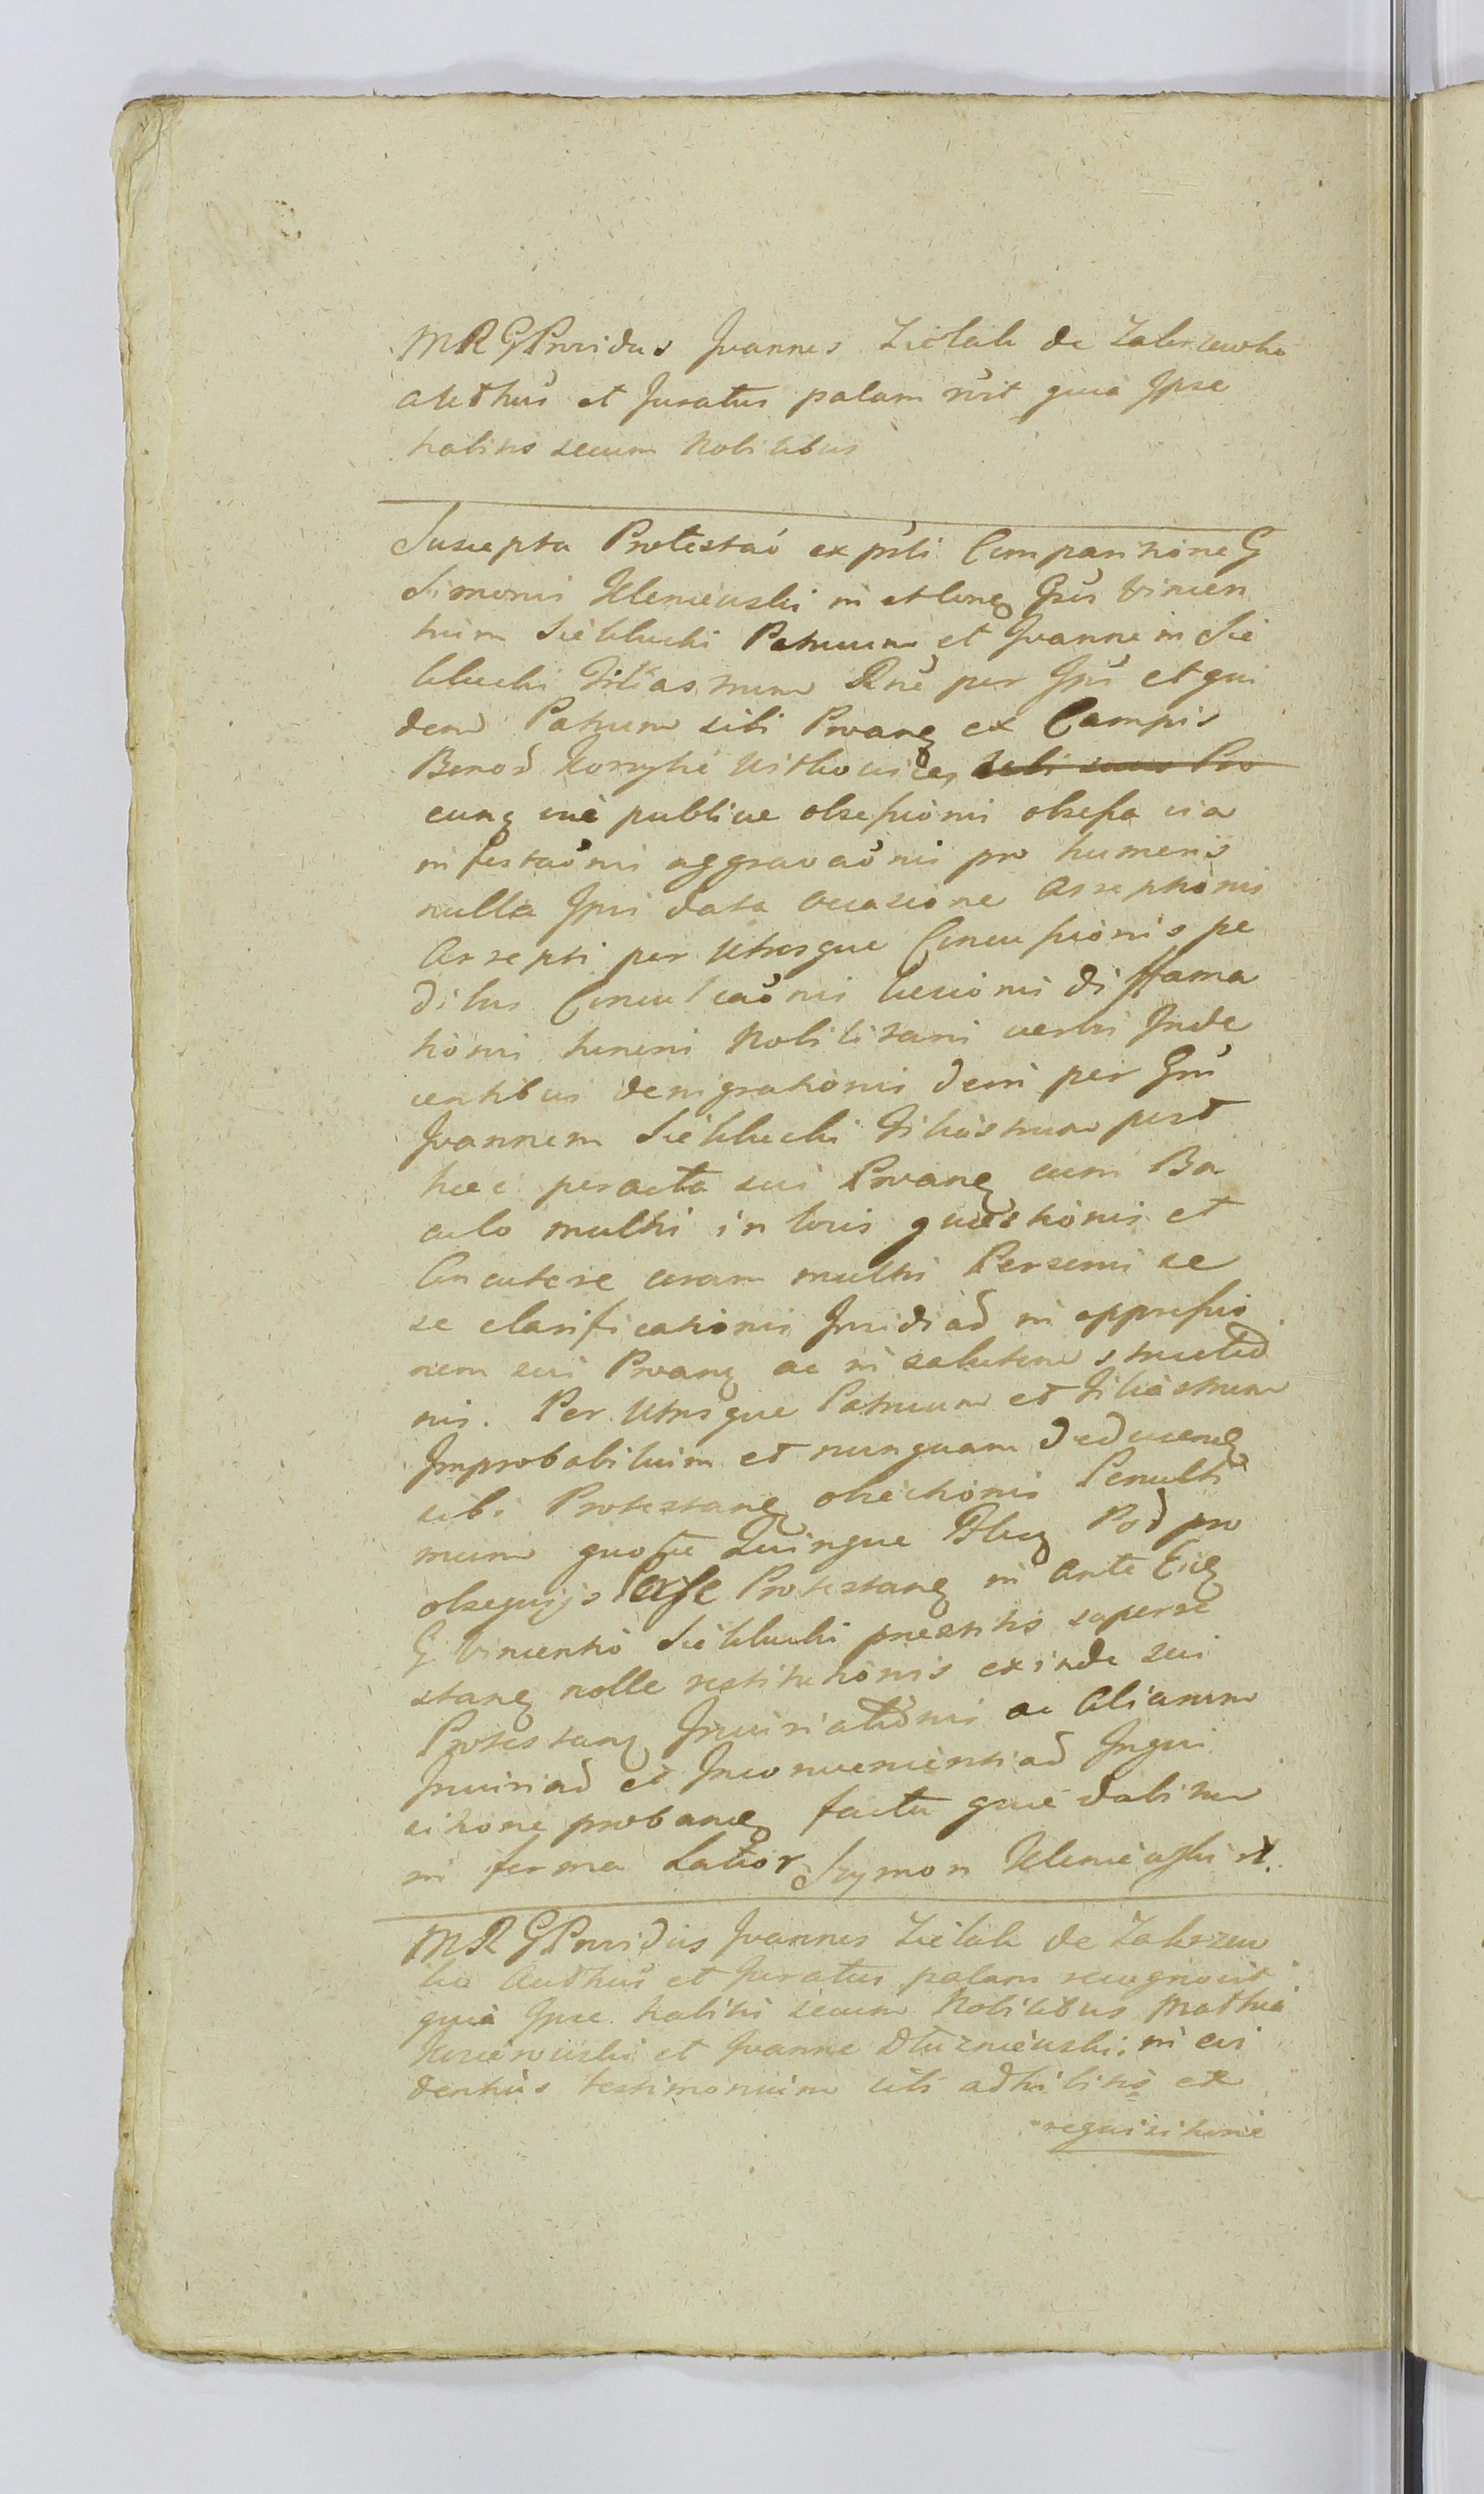 MRG Providus Joannes Zietak de Zakrzewko
Authus et Juratus palam rvit quia Ipse
habitis secum Nobilibus
Suscepta Protestaō ex psti Comparitione G
Simonis Uleniewski in et lonq Gsū Vincen
tium Siekłucki Patruum et Joannem Sie
kłucki Filiastrum Rne per Ipsū et qui
dem Patrum sibi Provang ex Campis
Bonor̄ Korzyki Witkowiczes
eunq vie publice obsessionis obsessa via
infestaōnis aggravaōnis pro humeris
nulla Ipsi data occasione Arreptionis
Arrepti per Utrosque Concussionis pe
dibus Conculcaōnis lesionis diffama
tionis honoris Nobilitaris verbis Inde
centibus denigrationis demi per Gsū
Joannem Siekłucki Filiastrum post
hæc peracta sui Provang cum Ba
culo multis in locis quæstionis et
Concutere coram multis Personis se
se clarificationis Insidiar̄ in oppressio
nem sui Provang ac in salutem structio
nis. Per Utrosque Patruum et Filiastrum
Improbabilium et nunquam deducend
sibi Protestang obiectionis Penulti
mum quotæ Quinque Flor Pol pro
obsequijs Perse Protestang in Ante Eiq
G Vincentio Siekłucki præstitis superex
stang nolle restitutionis exinde sui
Protestang Iniuriationis ac Aliarum
Iniuriar̄ et Inconvenientiar̄ Inqui
sitione proband facta quæ dabitur
in forma Latior Szymon Uleniewski
MRG Providus Joannes Zietak de Zakrzew
ko Authus et Juratus palam recognovit
quia Ipse habitis secum Nobilibus Mathia
Kosierowski et Joanne Dłuzniewski in evi
dentius testimonium sibi adhibitis ex
requisitione